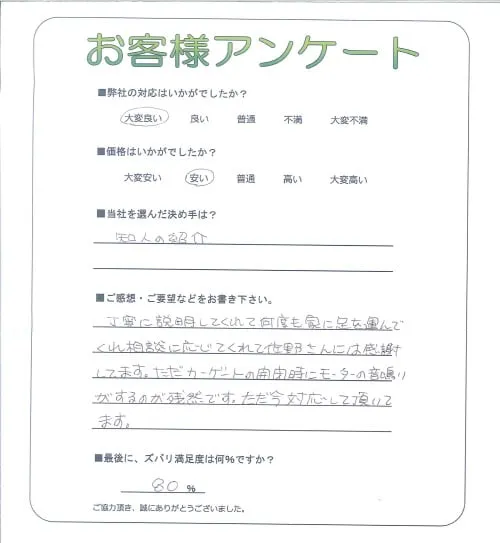 お客様アンケート
■弊社の対応はいかがでしたか？
大変良い 良い 普通 不満 大変不満
■価格はいかがでしたか？
大変安い 安い 普通 高い 大変高い
■当社を選んだ決め手は？
知人の紹介
■ご感想・ご要望などをお書き下さい。
丁寧に説明してくれて何度も家に足を運んで
くれ相談に応じてくれて佐野さんには感謝
してます。ただカーゲートの開閉時にモーターの音鳴り
がするのが残念です。ただ今対応して頂いて
ます。
■最後に、ズバリ満足度は何％ですか？
80 %
ご協力頂き、誠にありがとうございました。